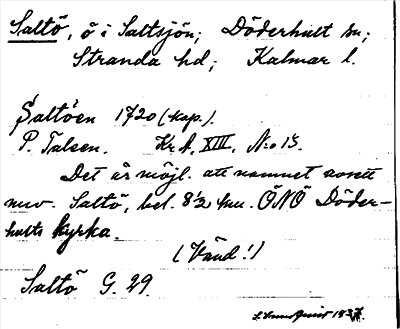 Saltö, ö i Saltsjön; Döderhult sn;
Stranda hd; Kalmar l.
Saltöen 1720 (kop.).
P. Talsen. Kr. A. XIII, N:o 13.
Det är möjl. att namnet avsett
nuv. Saltö, bel. 8½ km. ÖNÖ Döder-
hults kyrka.
(Vänd!)
Saltö G. 29.